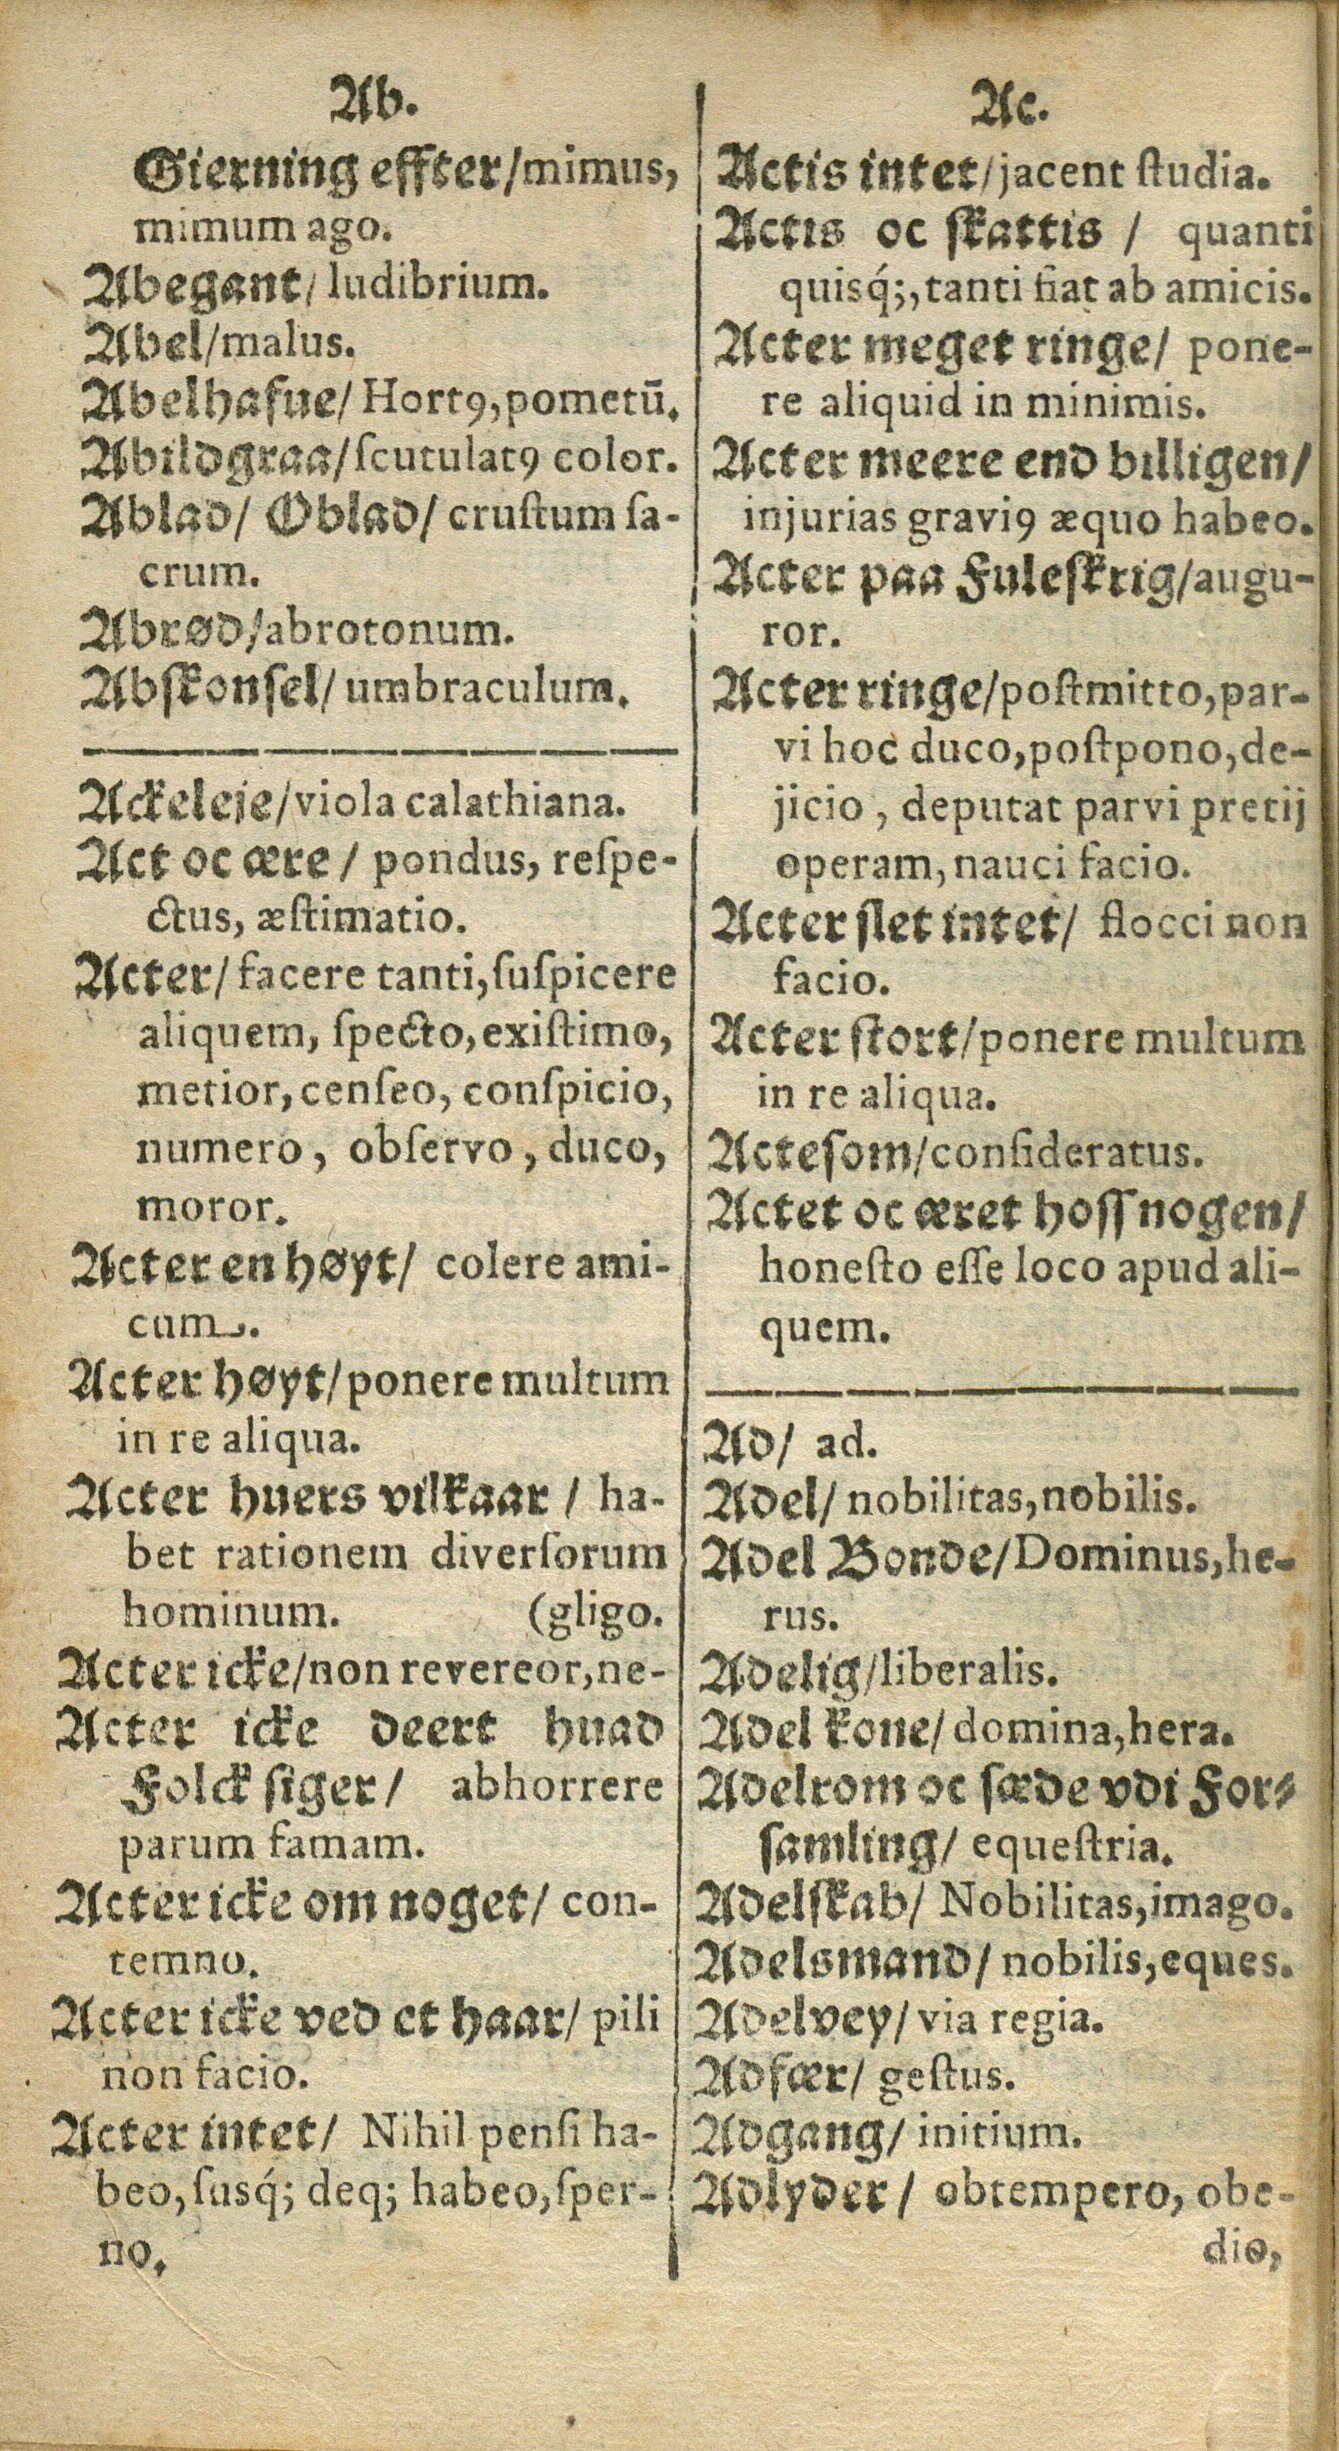 Ab.
Gierning effter/mimus,
mimum ago.
Abegant/ ludibrium.
Abel/malus.
Abelhafue/ Hortꝰ,pometū.
Abildgraa/ſcutulatꝰ color.
Ablad/ Oblad/ cruſtum ſa-
crum.
Abrød/abrotonum.
Abſkonſel/ umbraculum.
Ackeleje/viola calathiana.
Act oc ære / pondus, reſpe-
ctus, æſtimatio.
Acter/ facere tanti,ſuſpicere
aliquem, ſpecto, exiſtimo,
metior, cenſeo, conſpicio,
numero, obſervo, duco,
moror.
Acter en høyt/ colere ami-
cum.
Acter høyt/ponere multum
in re aliqua.
Acter huers vilkaar / ha-
bet rationem diverſorum
hominum. (gligo.
Acter icke/non revereor,ne-
Acter icke deert huad
Folck ſiger/ abhorrere
parum famam.
Acter icke om noget/ con-
temno.
Acter icke ved et haar/ pili
non facio.
Acter intet/ Nihil penſi ha-
beo, ſusq́; deq; habeo,ſper-
no.
Ac.
Actis intet/jacent ſtudia.
Actis oc ſkattis / quanti
quisq́;,tanti fiat ab amicis.
Acter meget ringe/ pone-
re aliquid in minimis.
Acter meere end billigen/
injurias graviꝰ æquo habeo.
Acter paa Fuleſkrig/augu-
ror.
Acter ringe/poſtmitto,par-
vi hoc duco,poſtpono,de-
jicio, deputat parvi pretij
operam, nauci facio.
Acter ſlet intet/ flocci non
facio.
Acter ſtort/ponere multum
in re aliqua.
Acteſom/conſideratus.
Actet oc æret hoſſ nogen/
honeſto eſſe loco apud ali-
quem.
Ad/ ad.
Adel/ nobilitas,nobilis.
Adel Bonde/Dominus,he-
rus.
Adelig/liberalis.
Adel kone/ domina,hera.
Adelrom oc ſæde vdi For-
ſamling/ equeſtria.
Adelſkab/ Nobilitas,imago.
Adelsmand/ nobilis,eques.
Adelvey/ via regia.
Adfær/ geſtus.
Adgang/ initium.
Adlyder/ obtempero, obe-
dio,